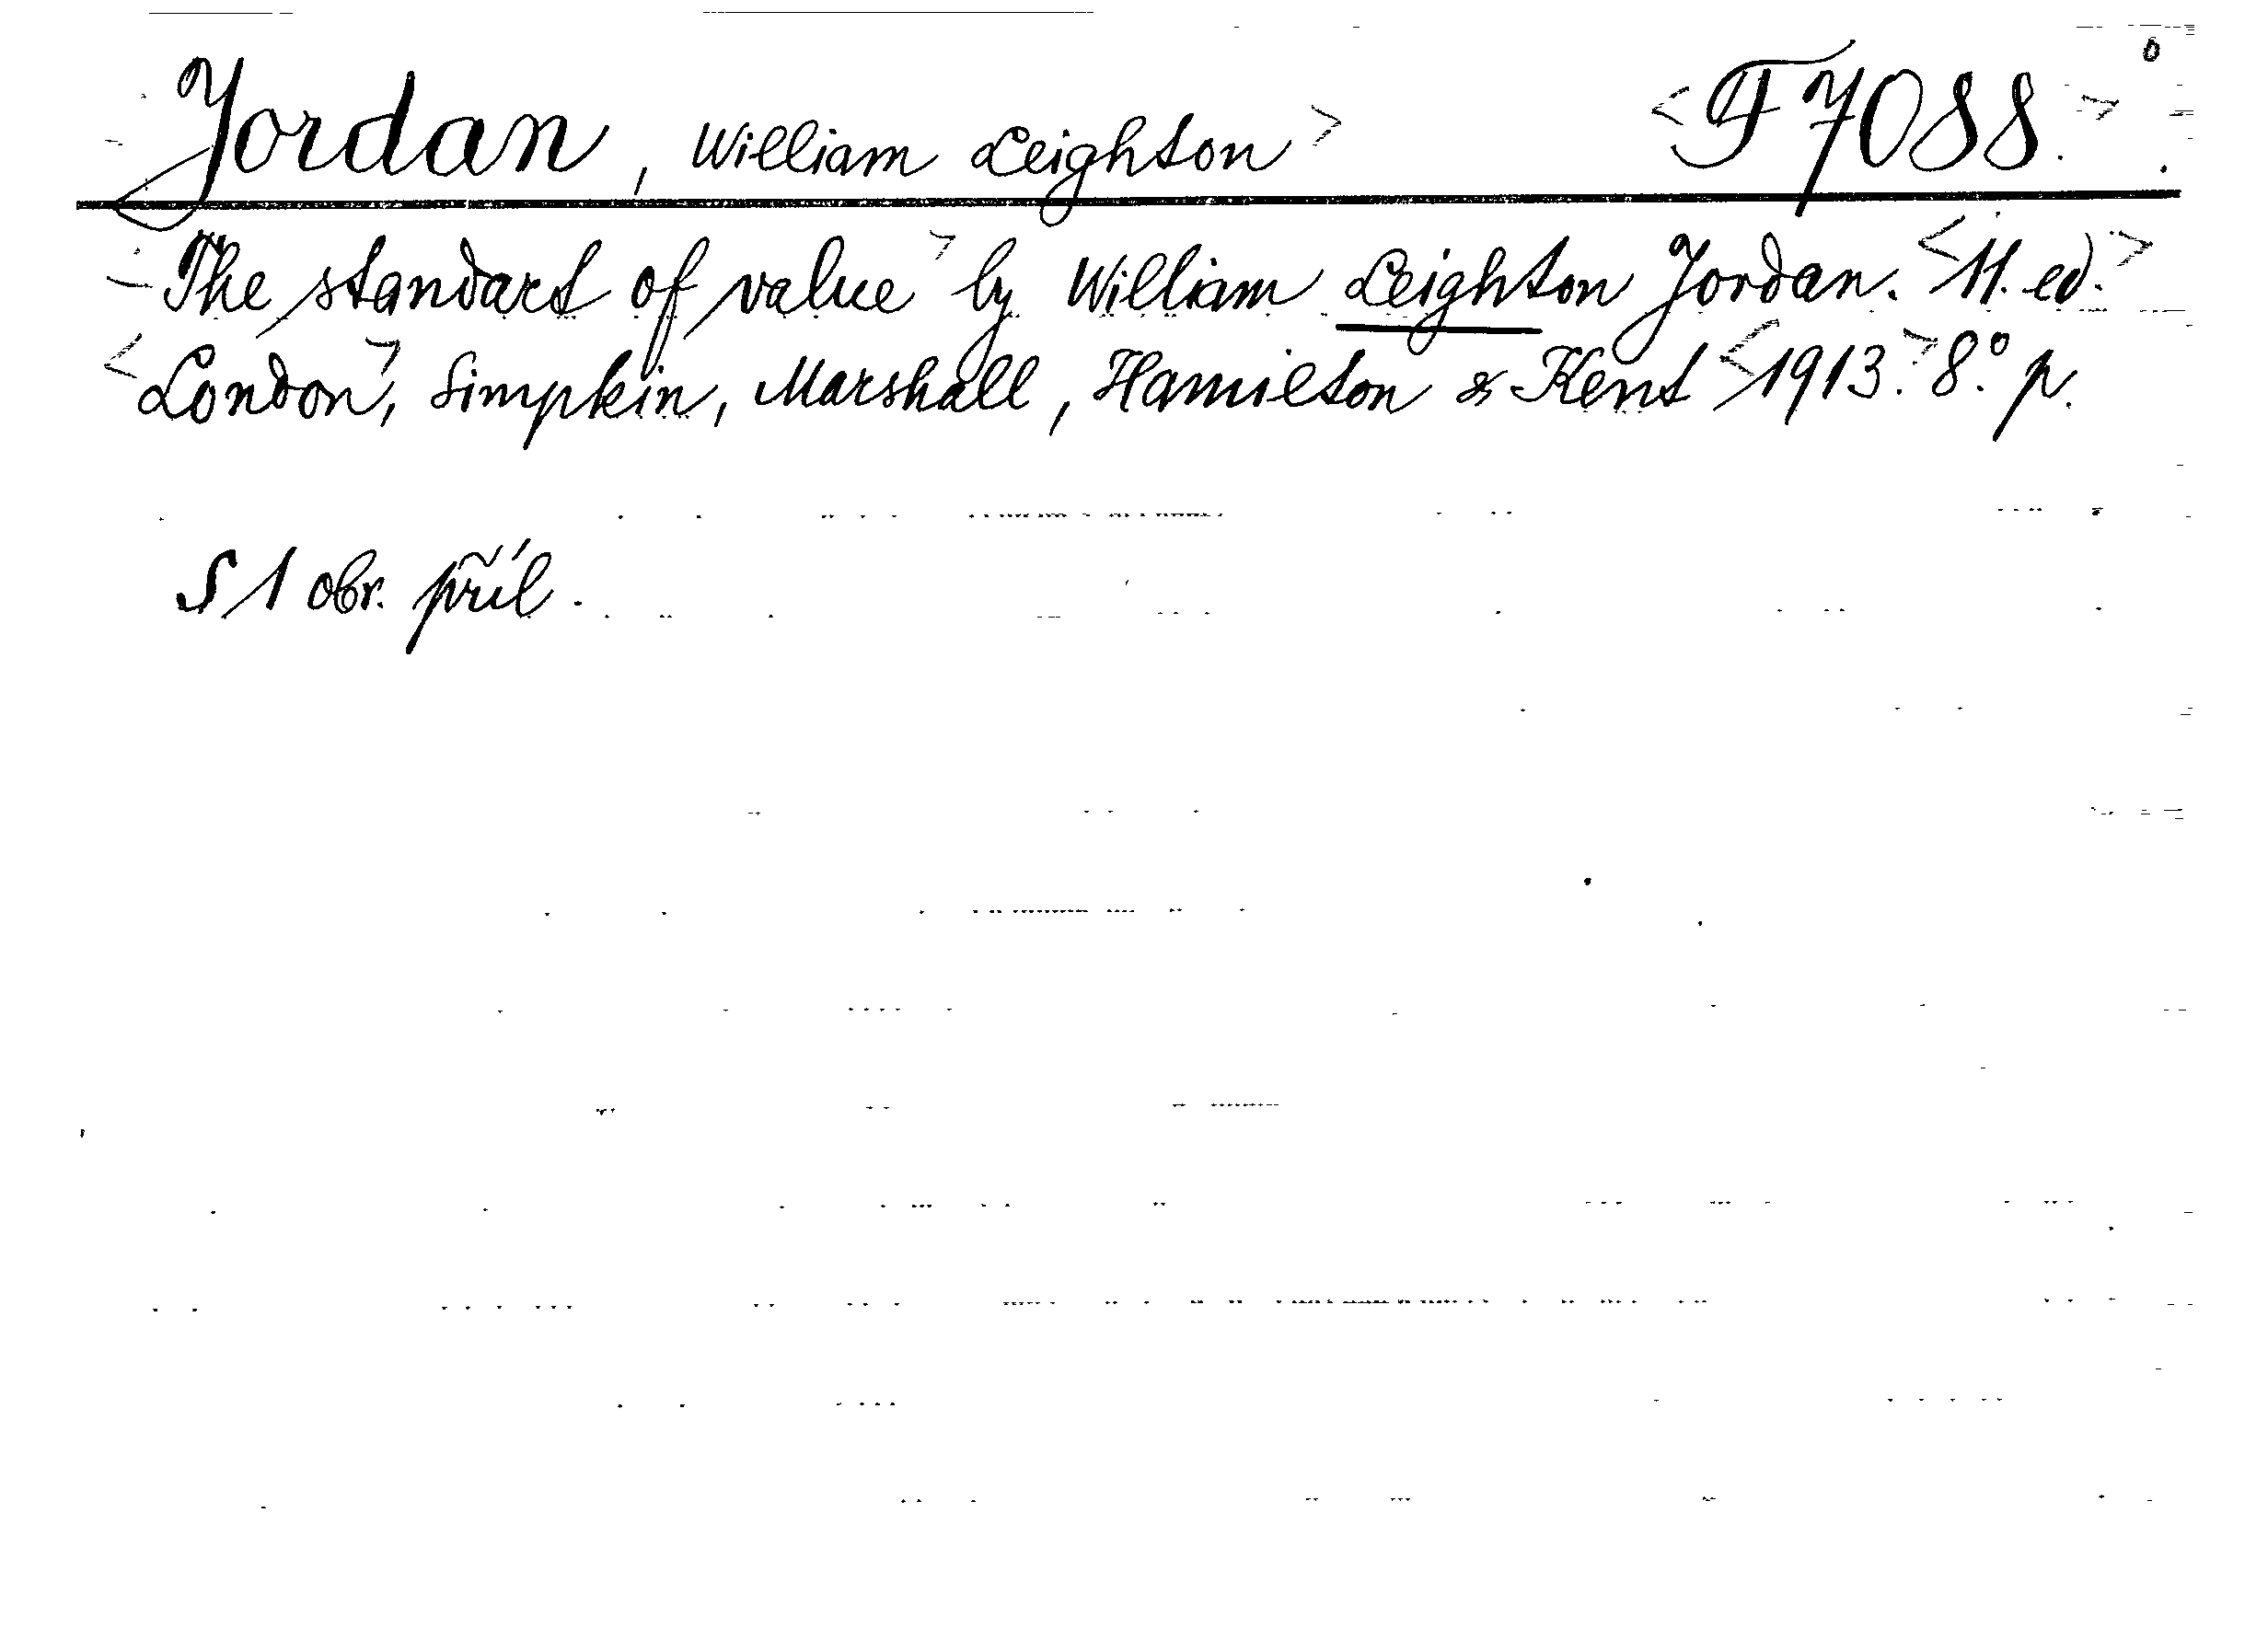 Jordan, William Leighton> <F 7088.>
<The standart of value> by William Leighton Jordan. <11. ed.>
<London>, Simpkin, Marshall, Hamilton & Kent <1913.> 8° p.
S 1 obr. příl.